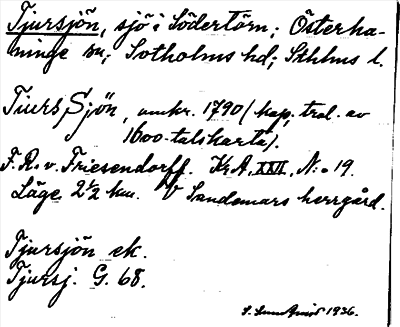 Tjursjön, sjö i Södertörn; Österha-
ninge sn; Sotholms hd; Sthlms l.
Tiurs Sjön, omkr. 1790 (kop. trol. av
1600-talskarta).
F. R. v. Friesendorff. Kr.A. XXII, N:o 19.
Läge 2½ km. V Sandemars herrgård.
Tjursjön ek.
Tjursj. G. 68.
1936.